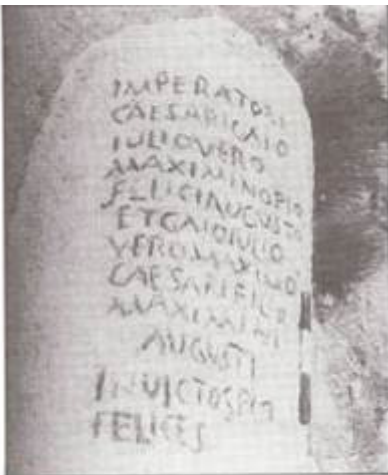 IMPERATORI
CAESARICAIO
IULIOVERO
MAXIMINOPIO
FELICIAUGUSTO
ETGAIOIULIO
VEROMAXIMO
CAESARIFILO
MAXIMINI
AUGUSTI
INVICTOSPII
FELICES